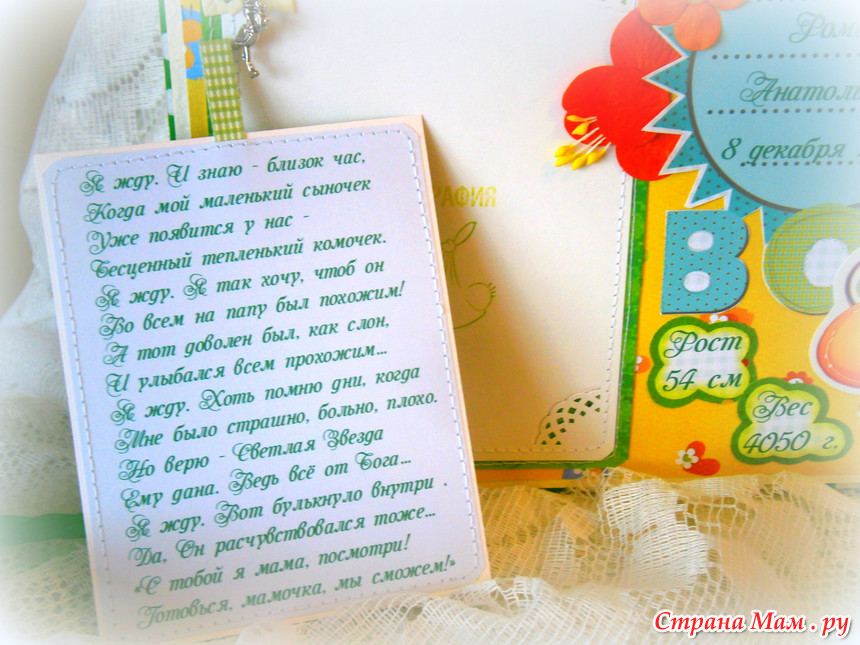 Я жду. И знаю - близок час,
Когда мой маленький сыночек
Уже появится у нас -
Бесценный тепленький комочек.
Я жду. Я так хочу, чтоб он
Во всем на папу был похожим!
А тот доволен был, как слон,
И улыбался всем прохожим...
Я жду. Хоть помню дни, когда
Мне было страшно, больно, плохо.
Но верю - Светлая Звезда
Ему дана. Ведь всё от Бога...
Я жду. Вот булькнуло внутри .
Да, Он расчувствовался тоже...
«С тобой я мама, посмотри!
Готовься, мамочка, мы сможем!»
РАФИЯ
Рома
Анатоли
8 декабря
BO
Рост
54 см
Вес
4050 г.
Страна Мам . ру